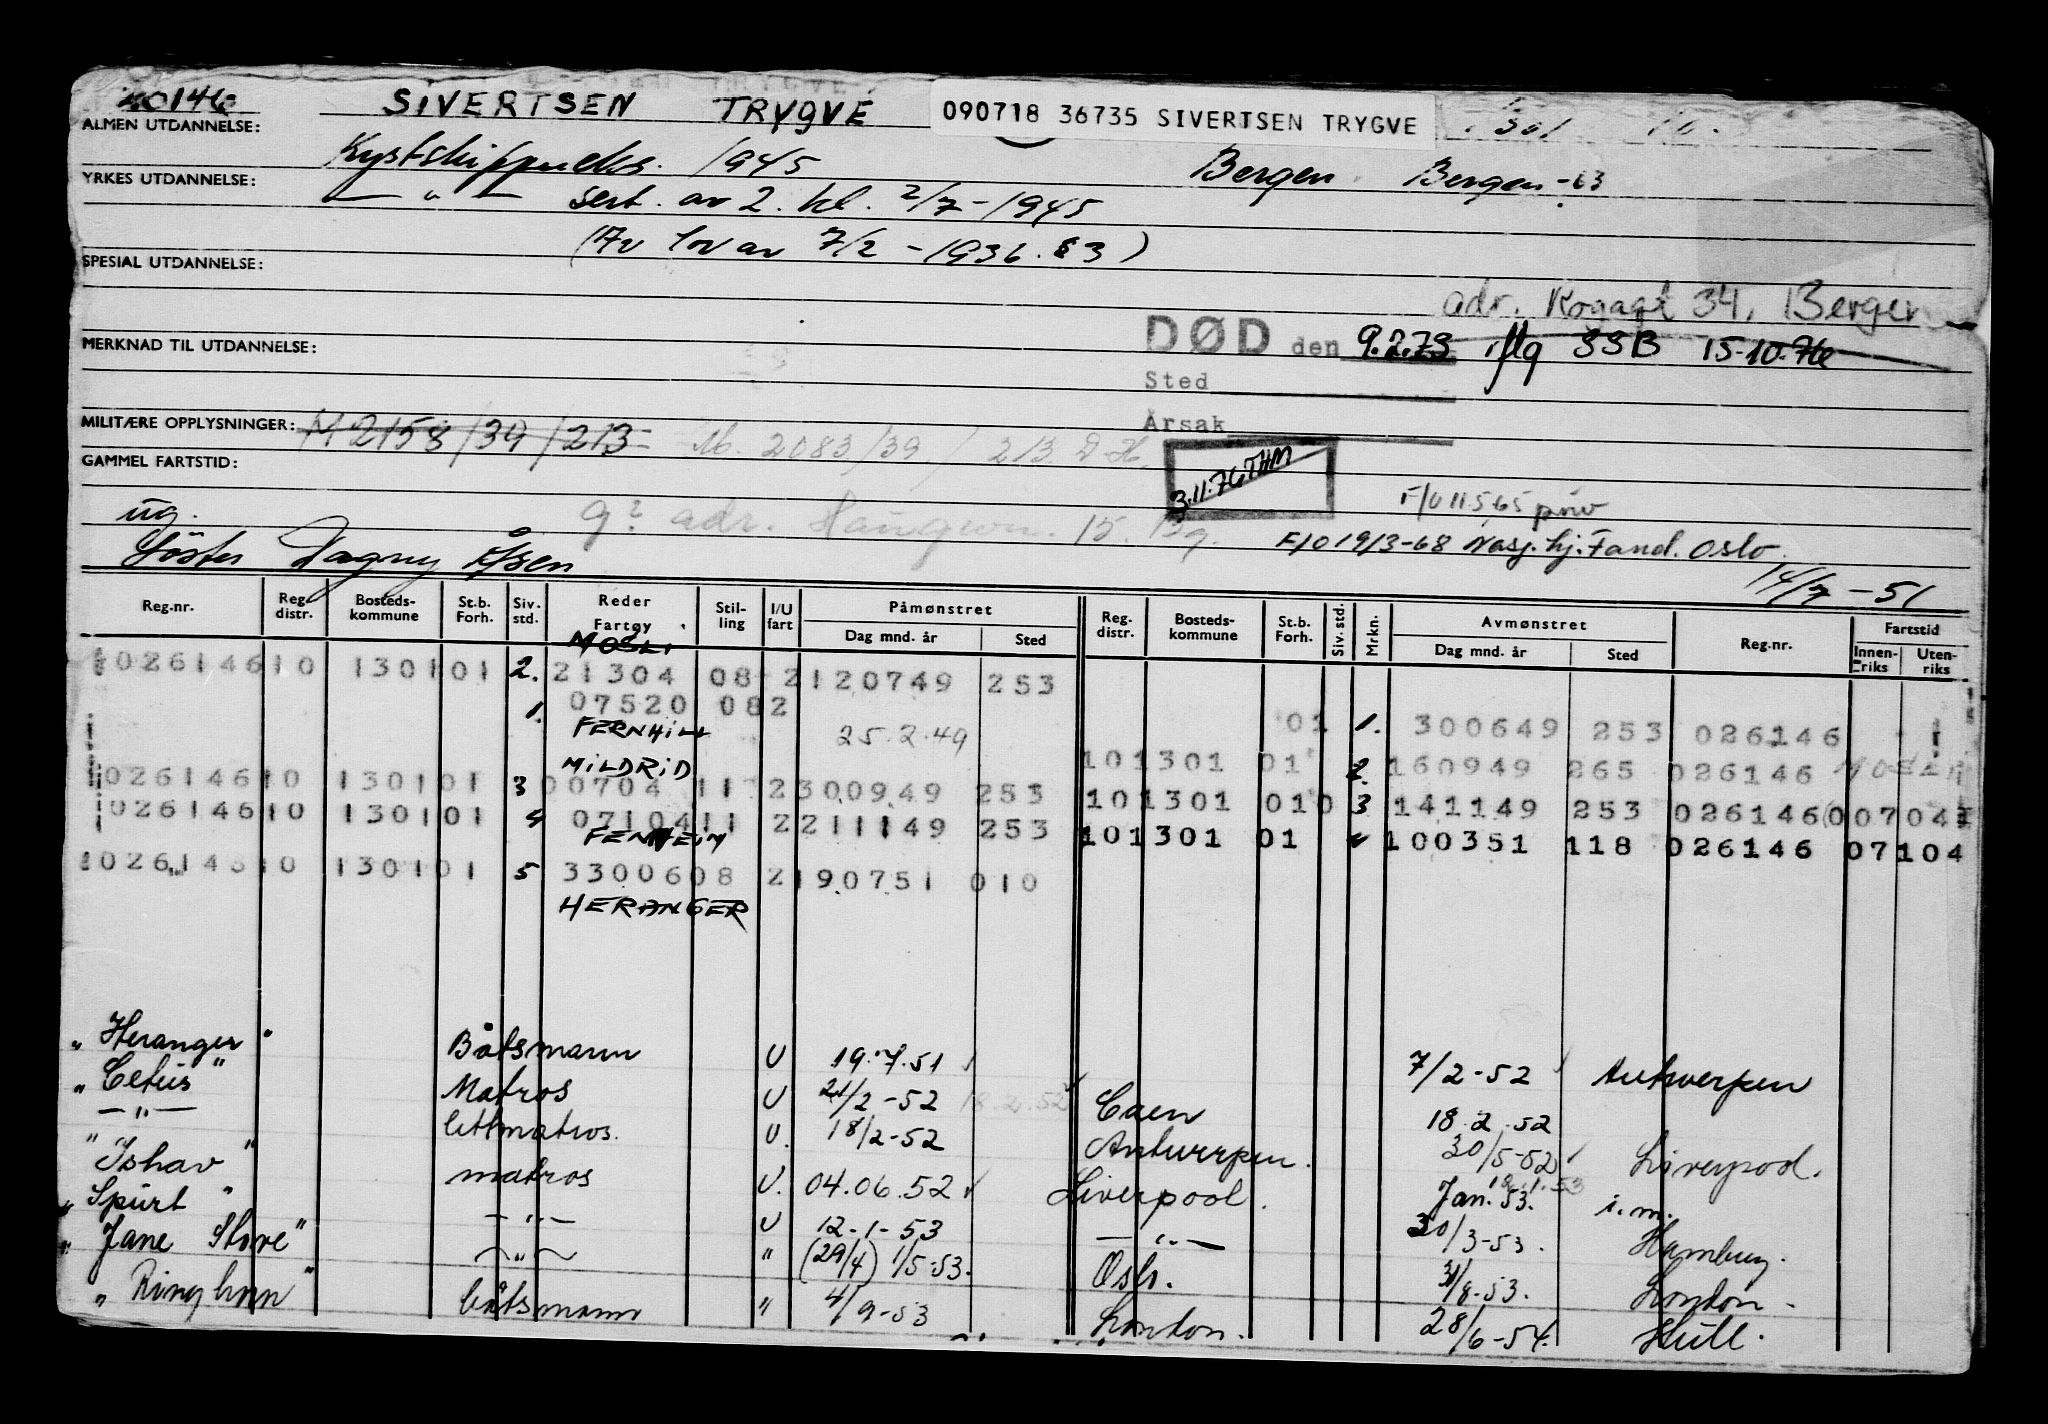 SIVERTSEN TRYGVE 090718 36735 SIVERTSEN TRYGVE
ALMEN UTDANNELSE:
1945 Bergen Bergen -63
YRKES UTDANNELSE:
— " — sert. av 2. kl. 2/7-1945
lov av 7/2 - 1936. §3)
SPESIAL UTDANNELSE:
adr. 34, Bergen
DØD den 9.2.73 iflg SSB 15-10.76
MERKNAD TIL UTDANNELSE:
Sted
Årsak
MILITÆRE OPPLYSNINGER: M 2158/39/213 M. 2083/39/213 D.H.
GAMMEL FARTSTID:
3.11.76 THM
ug. adr. 15. F/O 11.5.65
Søster Dagny F/O 19/3-68 Oslo.
14/7-51
Reg.nr. Reg. distr. Bosteds-kommune St.b. Forh. Siv. std. Reder Fartøy Stil-ling I/U fart Påmønstret Dag mnd. år Sted Reg. distr. Bosteds-kommune St.b. Forh. Siv. std. Mrkn. Avmønstret Dag mnd. år Sted Reg.nr. Fartstid Innen-riks Uten-riks
MOSLI
026146 10 1301 01 2. 21304 08 2 120749 253
1. 07520 08 2 01 1. 300649 253 026146
FERNHILL 25.2.49
MILDRID 10 1301 01 2. 160949 265 026146
026146 10 1301 01 3 00704 11 2 300949 253 10 1301 010 3 141149 253 026146 00704
026146 10 1301 01 4 07104 11 2 211149 253 10 1301 01 4 100351 118 026146 07104
FERNHEIM
026146 10 1301 01 5 33006 08 2 190751 010
HERANGER
"Heranger" Båtsmann U 19.7.51 7/2-52 Antwerpen
"Cetus" Matros U 2/2-52 18.2.52 Caen 18.2.52
— " — lettmatros. U. 18/2-52 Antwerpen. 30/5-52 Liverpool.
"Ishav" matros U. 04.06.52 Liverpool. Jan. 53. i.m.
"Spurt" — " — U 12-1-53 — " — 30/3-53. Hamburg.
"Jane Stove" — " — " (29/4) 1/5-53. Oslo. 31/8-53. London.
"Ringhorn" båtsmann " 4/9-53 London. 28/6-54. Hull.